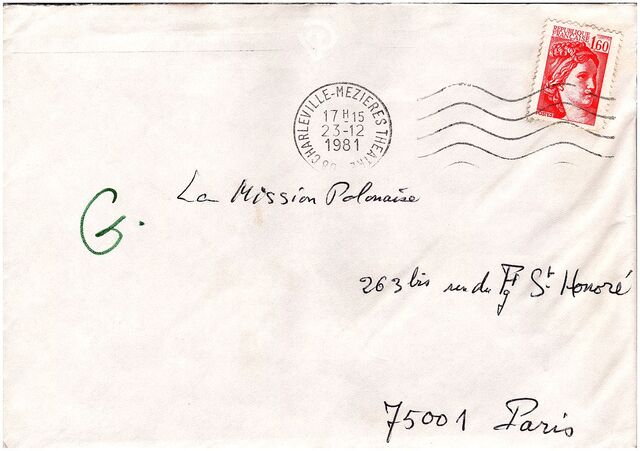 REPUBLIQUE
FRANÇAISE
1,60
CHARLEVILLE-MEZIERES THEATRE 08
17 H 15
23-12
1981
G.
La Mission Polonaise
263 bis rue du Fg St Honoré
75001 Paris